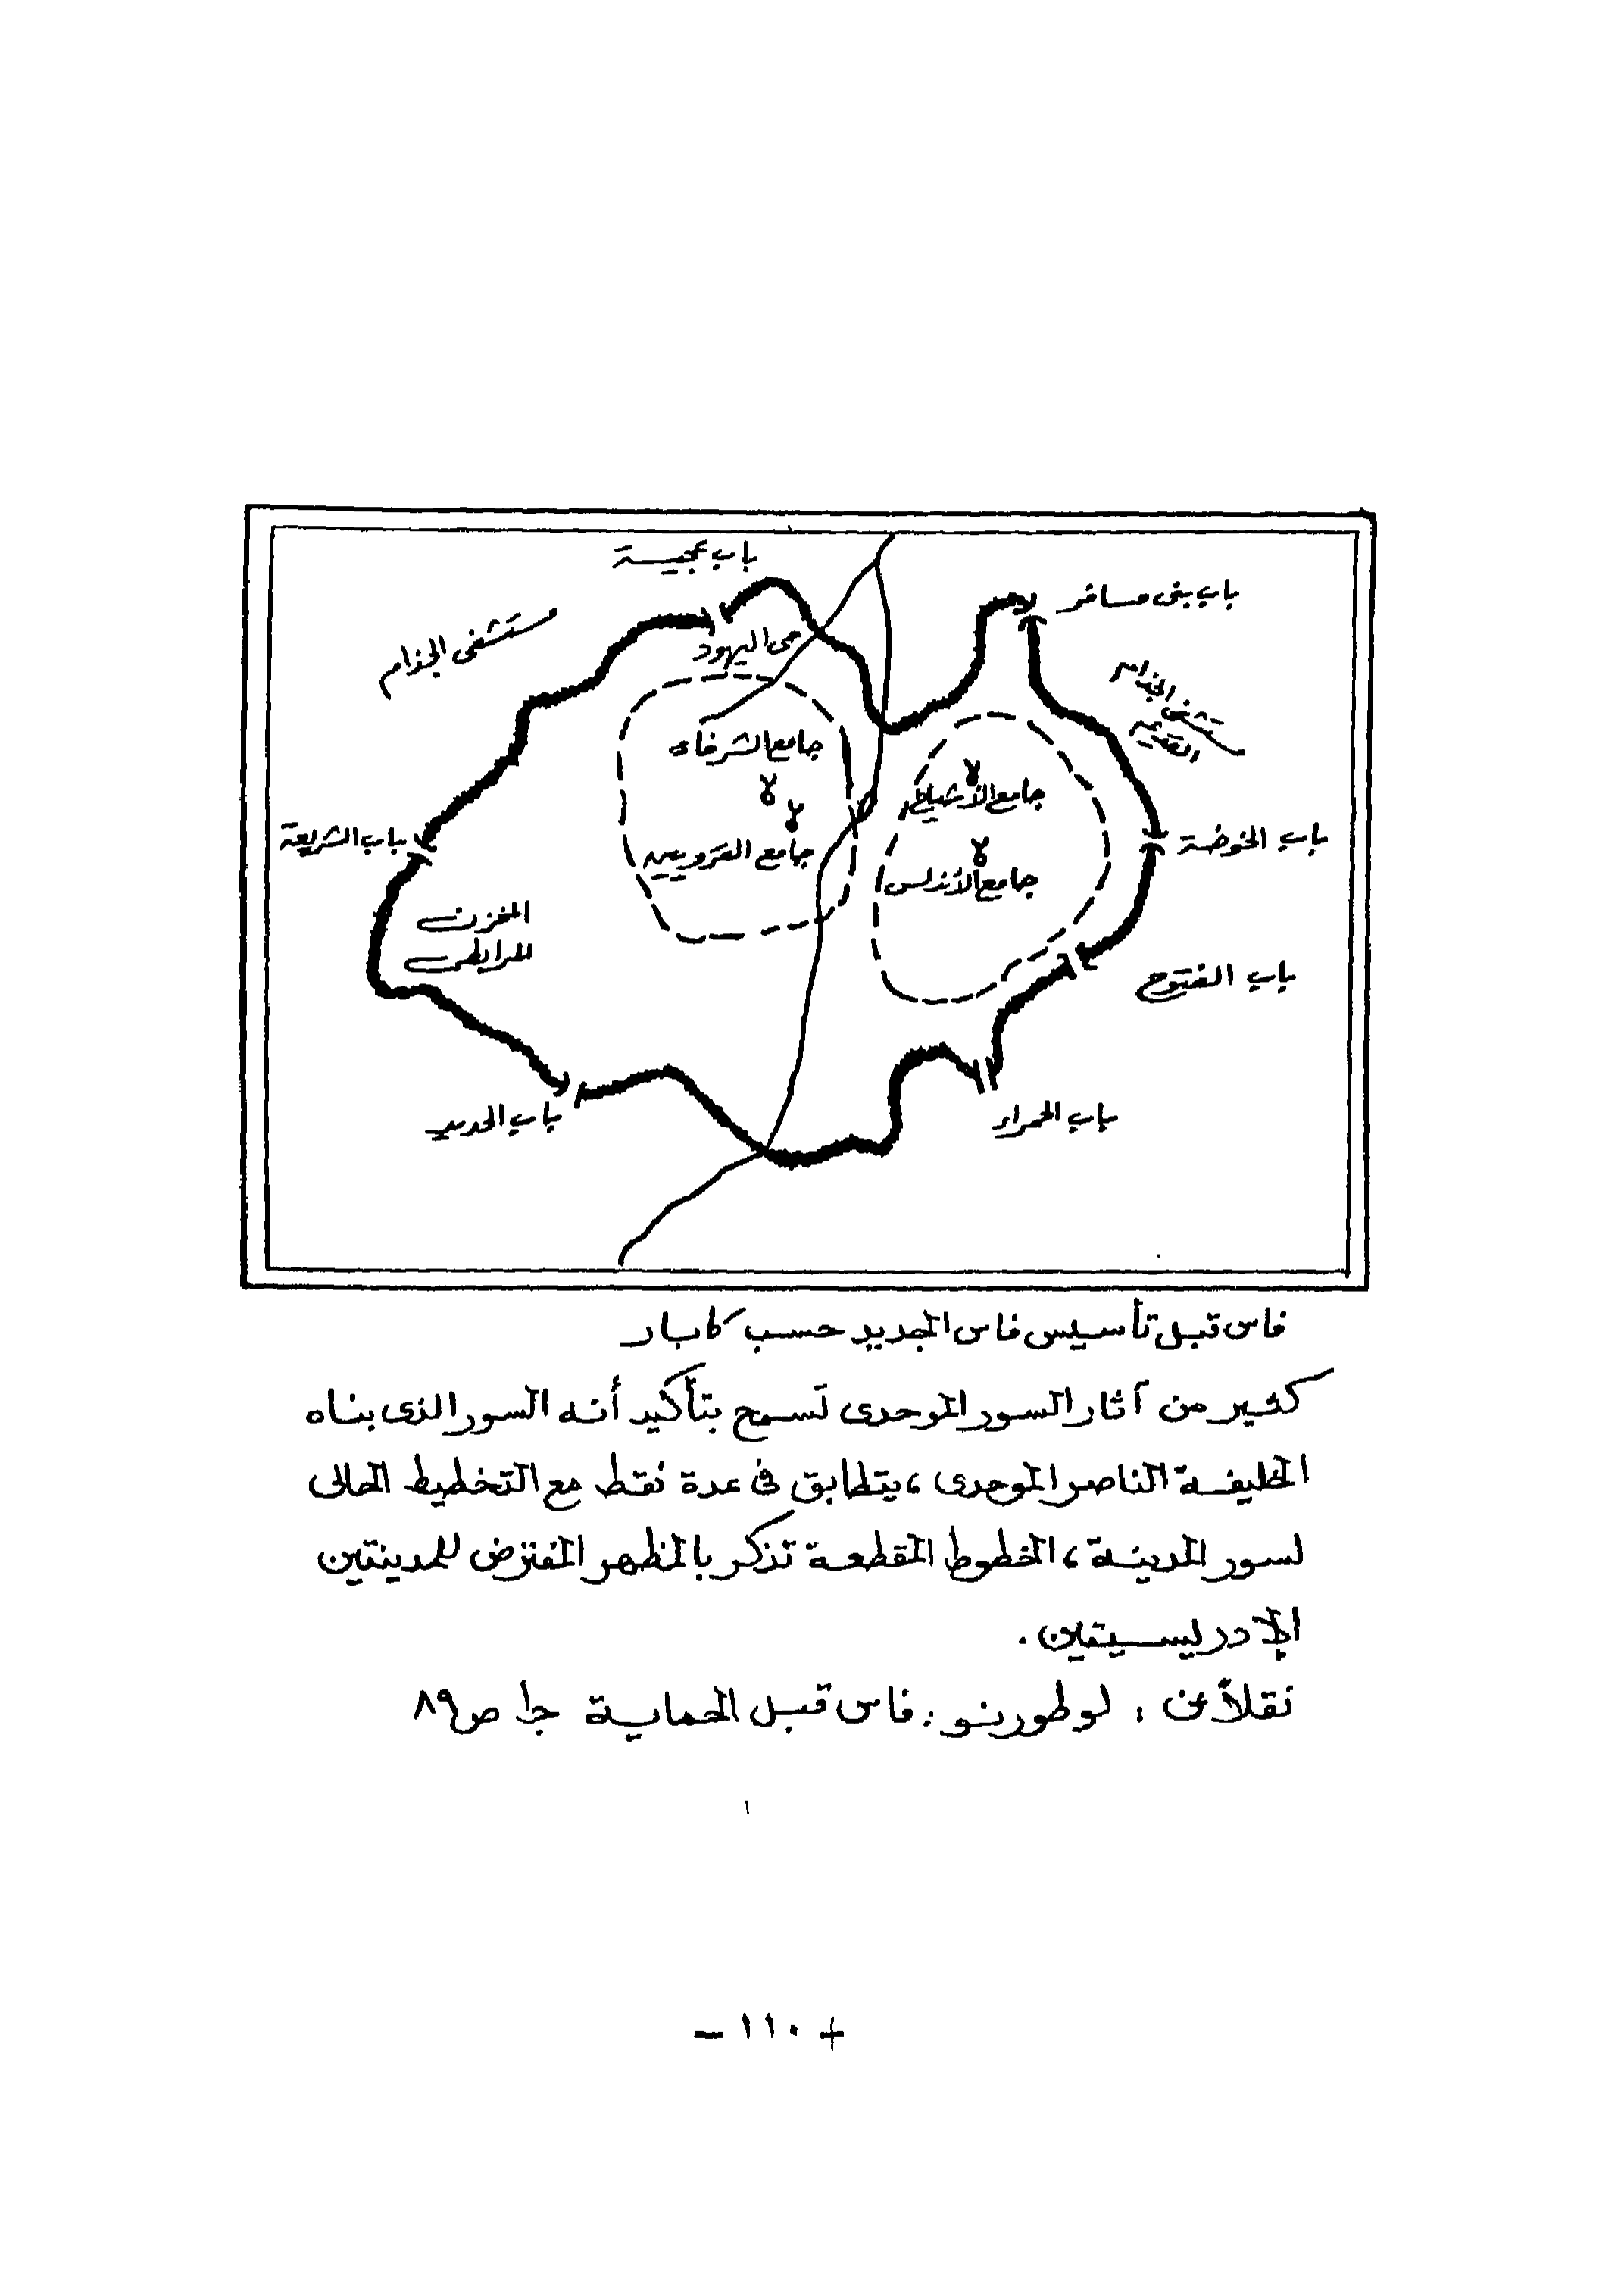 باب عجيسة
باب بنى مسافر
مستشفى الجذام
حى اليهود
الجذام
القديم
جامع الشرفاء
جامع الأشياخ
باب الشريعة
باب الخوخة
جامع القرويين
جامع الأندلس
المخزن
المرابطى
باب الفتوح
باب الحديد
باب الحمراء
فاس قبل تأسيس فاس الجديد حسب كابار
كثير من آثار السور الموحدى تسمح بتأكيد أنه السور الذى بناه
الخليفة الناصر الموحدى، يتطابق فى عدة نقط مع التخطيط الحالى
لسور المدينة، الخطوط المقطعة تذكر بالمظهر المفترض للمدينتين
الإدريسيتين.
نقلاً عن : لوطورنو : فاس قبل الحماية ج١ ص٨٩
- ١١٠ -